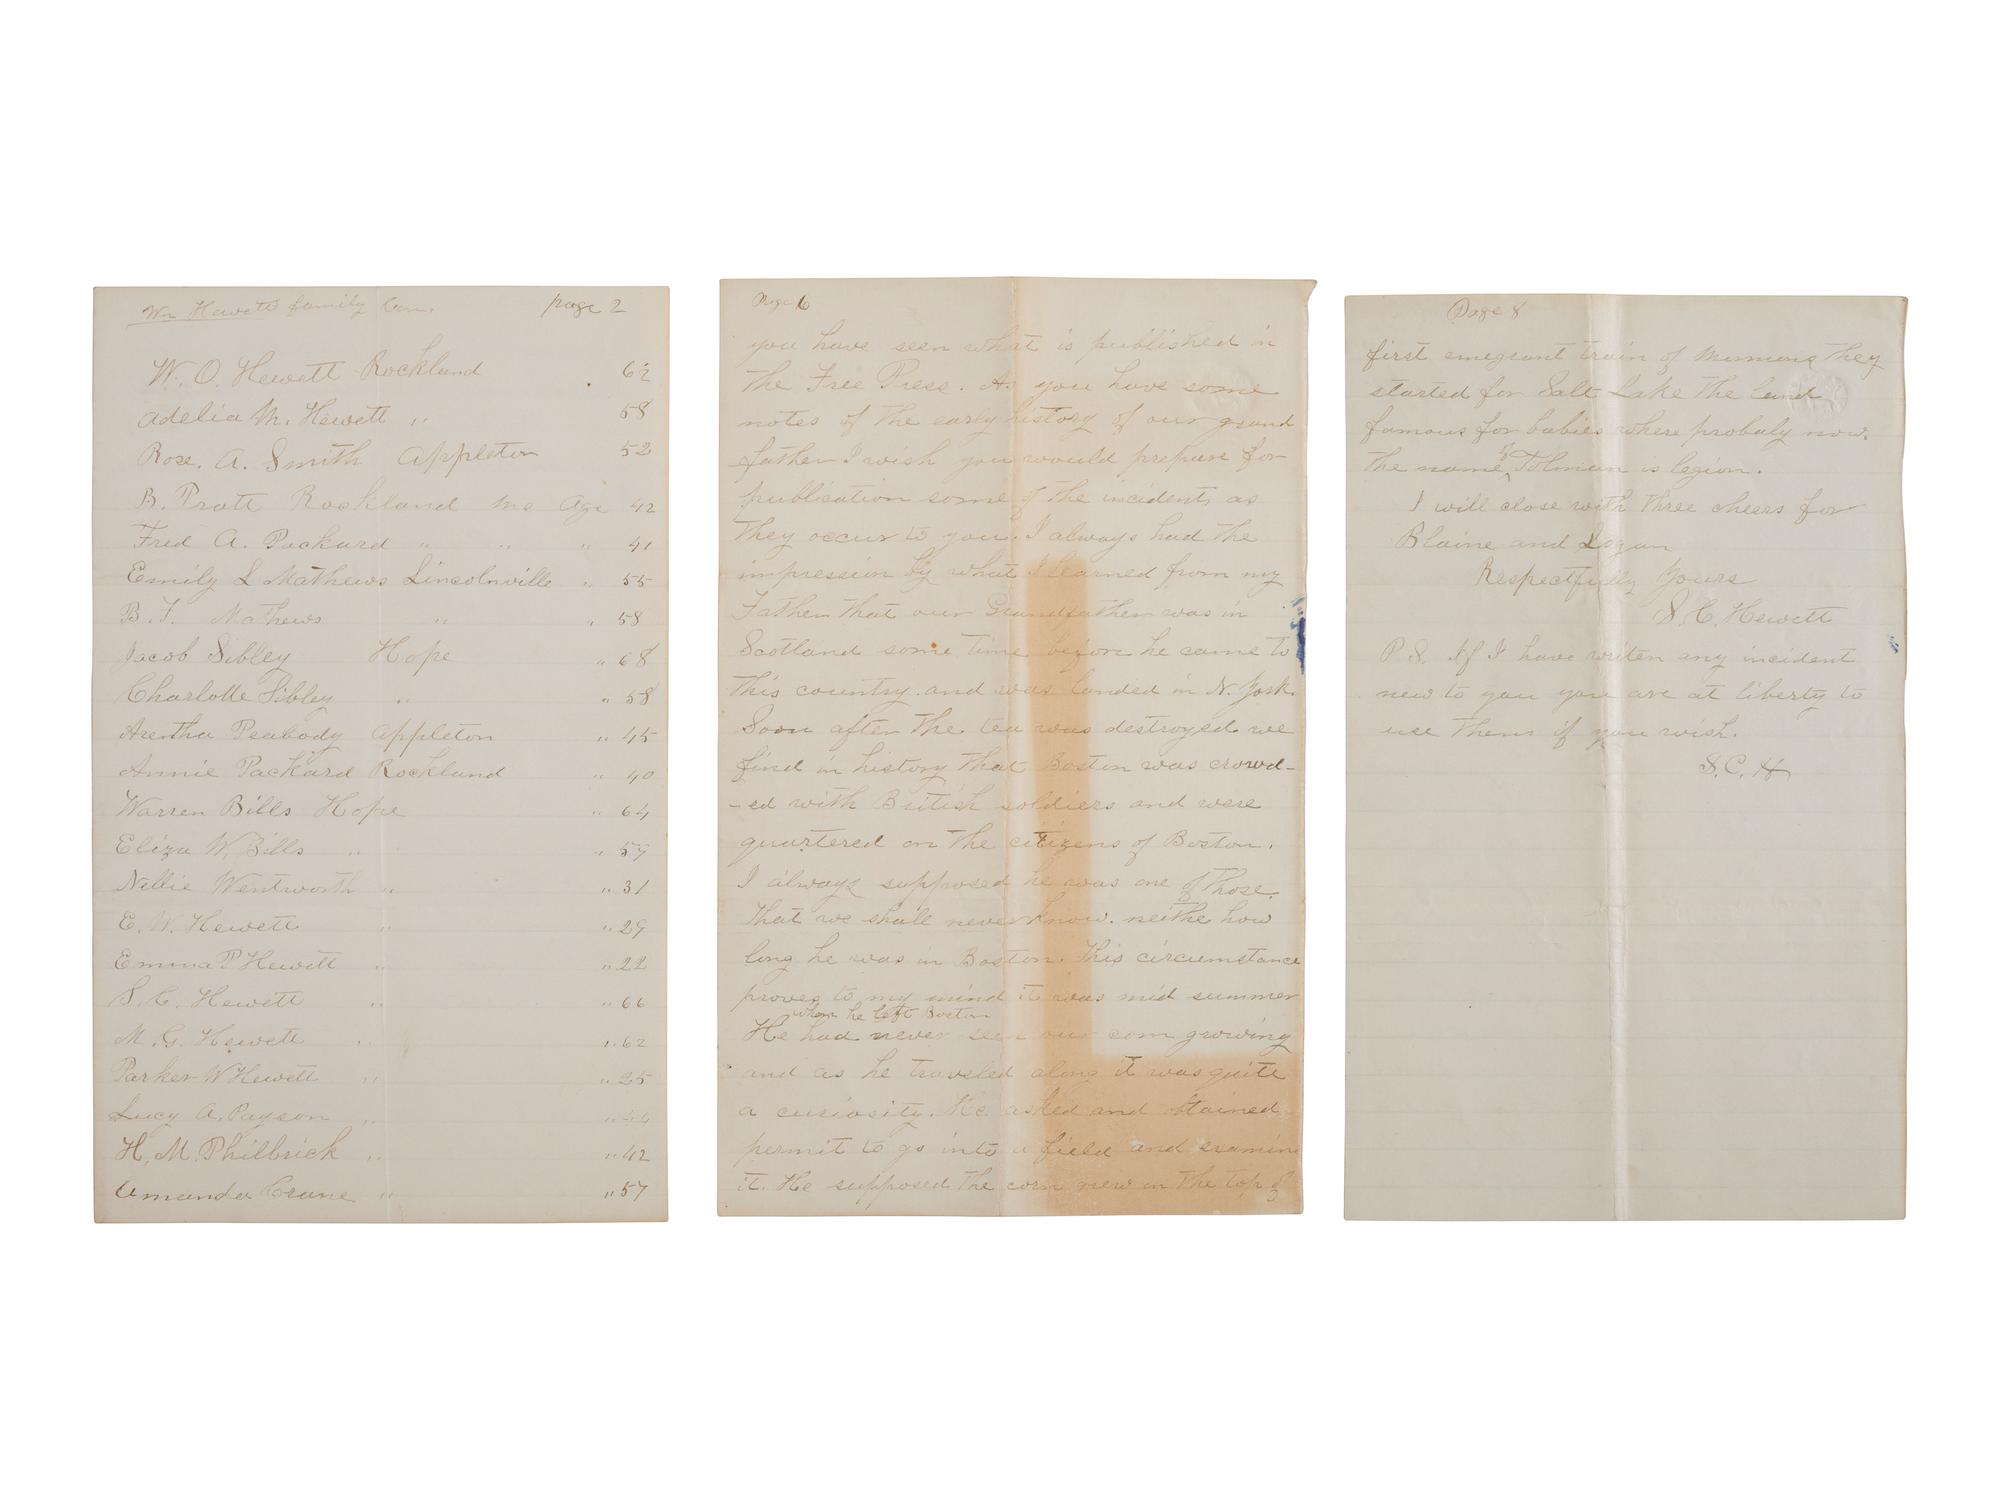 Wm Hewett family Con. page 2
W. O. Hewett Rockland 62
Adelia M. Hewett " 58
Rose. A. Smith Appleton 52
B. Pratt Rockland Me Age 42
Fred A. Packard " " " 41
Emily L Mathews Lincolnville " 55
B. F. Mathews " " 58
Jacob Sibley Hope " 68
Charlotte Sibley " " 58
Aretha Peabody Appleton " 45
Annie Packard Rockland " 40
Warren Bills Hope " 64
Eliza W. Bills " " 59
Nellie Wentworth " " 31
E. W. Hewett " " 29
Emma P Hewett " " 22
S. C. Hewett " " 66
M. G. Hewett " " 62
Parker W Hewett " " 25
Lucy A. Payson " " 44
H. M. Philbrick " " 42
Amanda Crane " " 57
Page 6
you have seen what is published in
the Free Press. As you have some
notes of the early history of our grand
father I wish you would prepare for
publication some of the incidents as
they occur to you. I always had the
impression by what I learned from my
Father that our Grandfather was in
Scotland some time before he came to
this country. and was landed in N. York.
Soon after the tea was destroyed we
find in history that Boston was crowd-
-ed with British soldiers and were
quartered on the citizens of Boston.
I always supposed he was one of those.
that we shall never know. neithe how
long he was in Boston. This circumstance
proves to my mind it was mid summer
when he left Boston
He had never seen our corn growing
and as he traveled along it was quite
a curiosity. He asked and obtained
permit to go into a field and examin
it. He supposed the corn grew in the top of
Page 8
first emegrant train of Mormons they
started for Salt Lake the land
famous for babies where probaly now.
the name of Tolman is legion.
I will close with three cheers for
Blaine and Logan
Respectfully Yours
S. C. Hewett
P. S. If I have writen any incident
new to you you are at liberty to
use them if you wish.
S. C. H